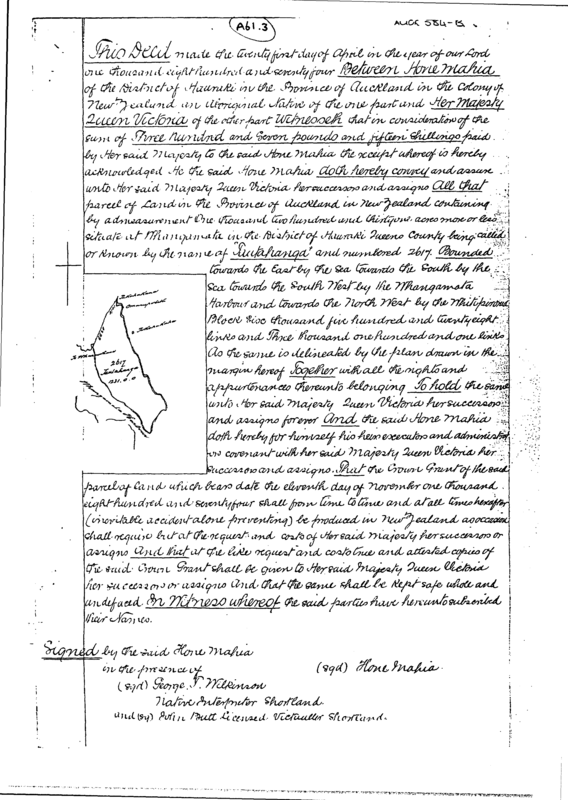 A61.3
AUCK 584-B.
This Deed made the twenty first day of April in the year of our Lord
one thousand eight hundred and seventy four Between Hone Mahia
of the District of Hauraki in the Province of Auckland in the Colony of
New Zealand an Aboriginal Native of the one part and Her Majesty
Queen Victoria of the other part Witnesseth that in consideration of the
sum of Three hundred and Seven pounds and fifteen shillings paid
by Her said Majesty to the said Hone Mahia the receipt whereof is hereby
acknowledged He the said Hone Mahia doth hereby convey and assure
unto Her said Majesty Queen Victoria her successors and assigns All that
parcel of Land in the Province of Auckland in New Zealand containing
by admeasurement One thousand two hundred and thirty one acres more or less
situate at Whangamata in the District of Hauraki Queens County being called
or known by the name of and numbered 2617. Bounded
towards the East by the Sea towards the South by the
Sea towards the South West by the Whangamata
Harbour and towards the North West by the
Block five thousand five hundred and twenty eight
links and Three thousand one hundred and one links
As the same is delineated by the plan drawn in the
margin hereof Together with all the rights and
appurtenances thereunto belonging To hold the same
unto Her said Majesty Queen Victoria her successors
and assigns forever And the said Hone Mahia
doth hereby for himself his heirs executors and administrat
ors covenant with her said Majesty Queen Victoria her
successors and assigns. That the Crown Grant of the said
2617
1231.0.0
parcel of Land which bears date the eleventh day of November one thousand
eight hundred and seventy four shall from time to time and at all times hereafter
(inevitable accident alone preventing) be produced in New Zealand as occasion
shall require but at the request and costs of Her said Majesty her successors or
assigns And that at the like request and costs true and attested copies of
the said Crown Grant shall be given to Her said Majesty Queen Victoria
her successors or assigns And that the same shall be kept safe whole and
undefaced In Witness whereof the said parties have hereunto subscribed
their Names.
Signed by the said Hone Mahia
in the presence of
(sgd) Hone Mahia.
(sgd) George T. Wilkinson
Native Interpreter Shortland.
and (sg) John Butt Licensed Victualler Shortland.